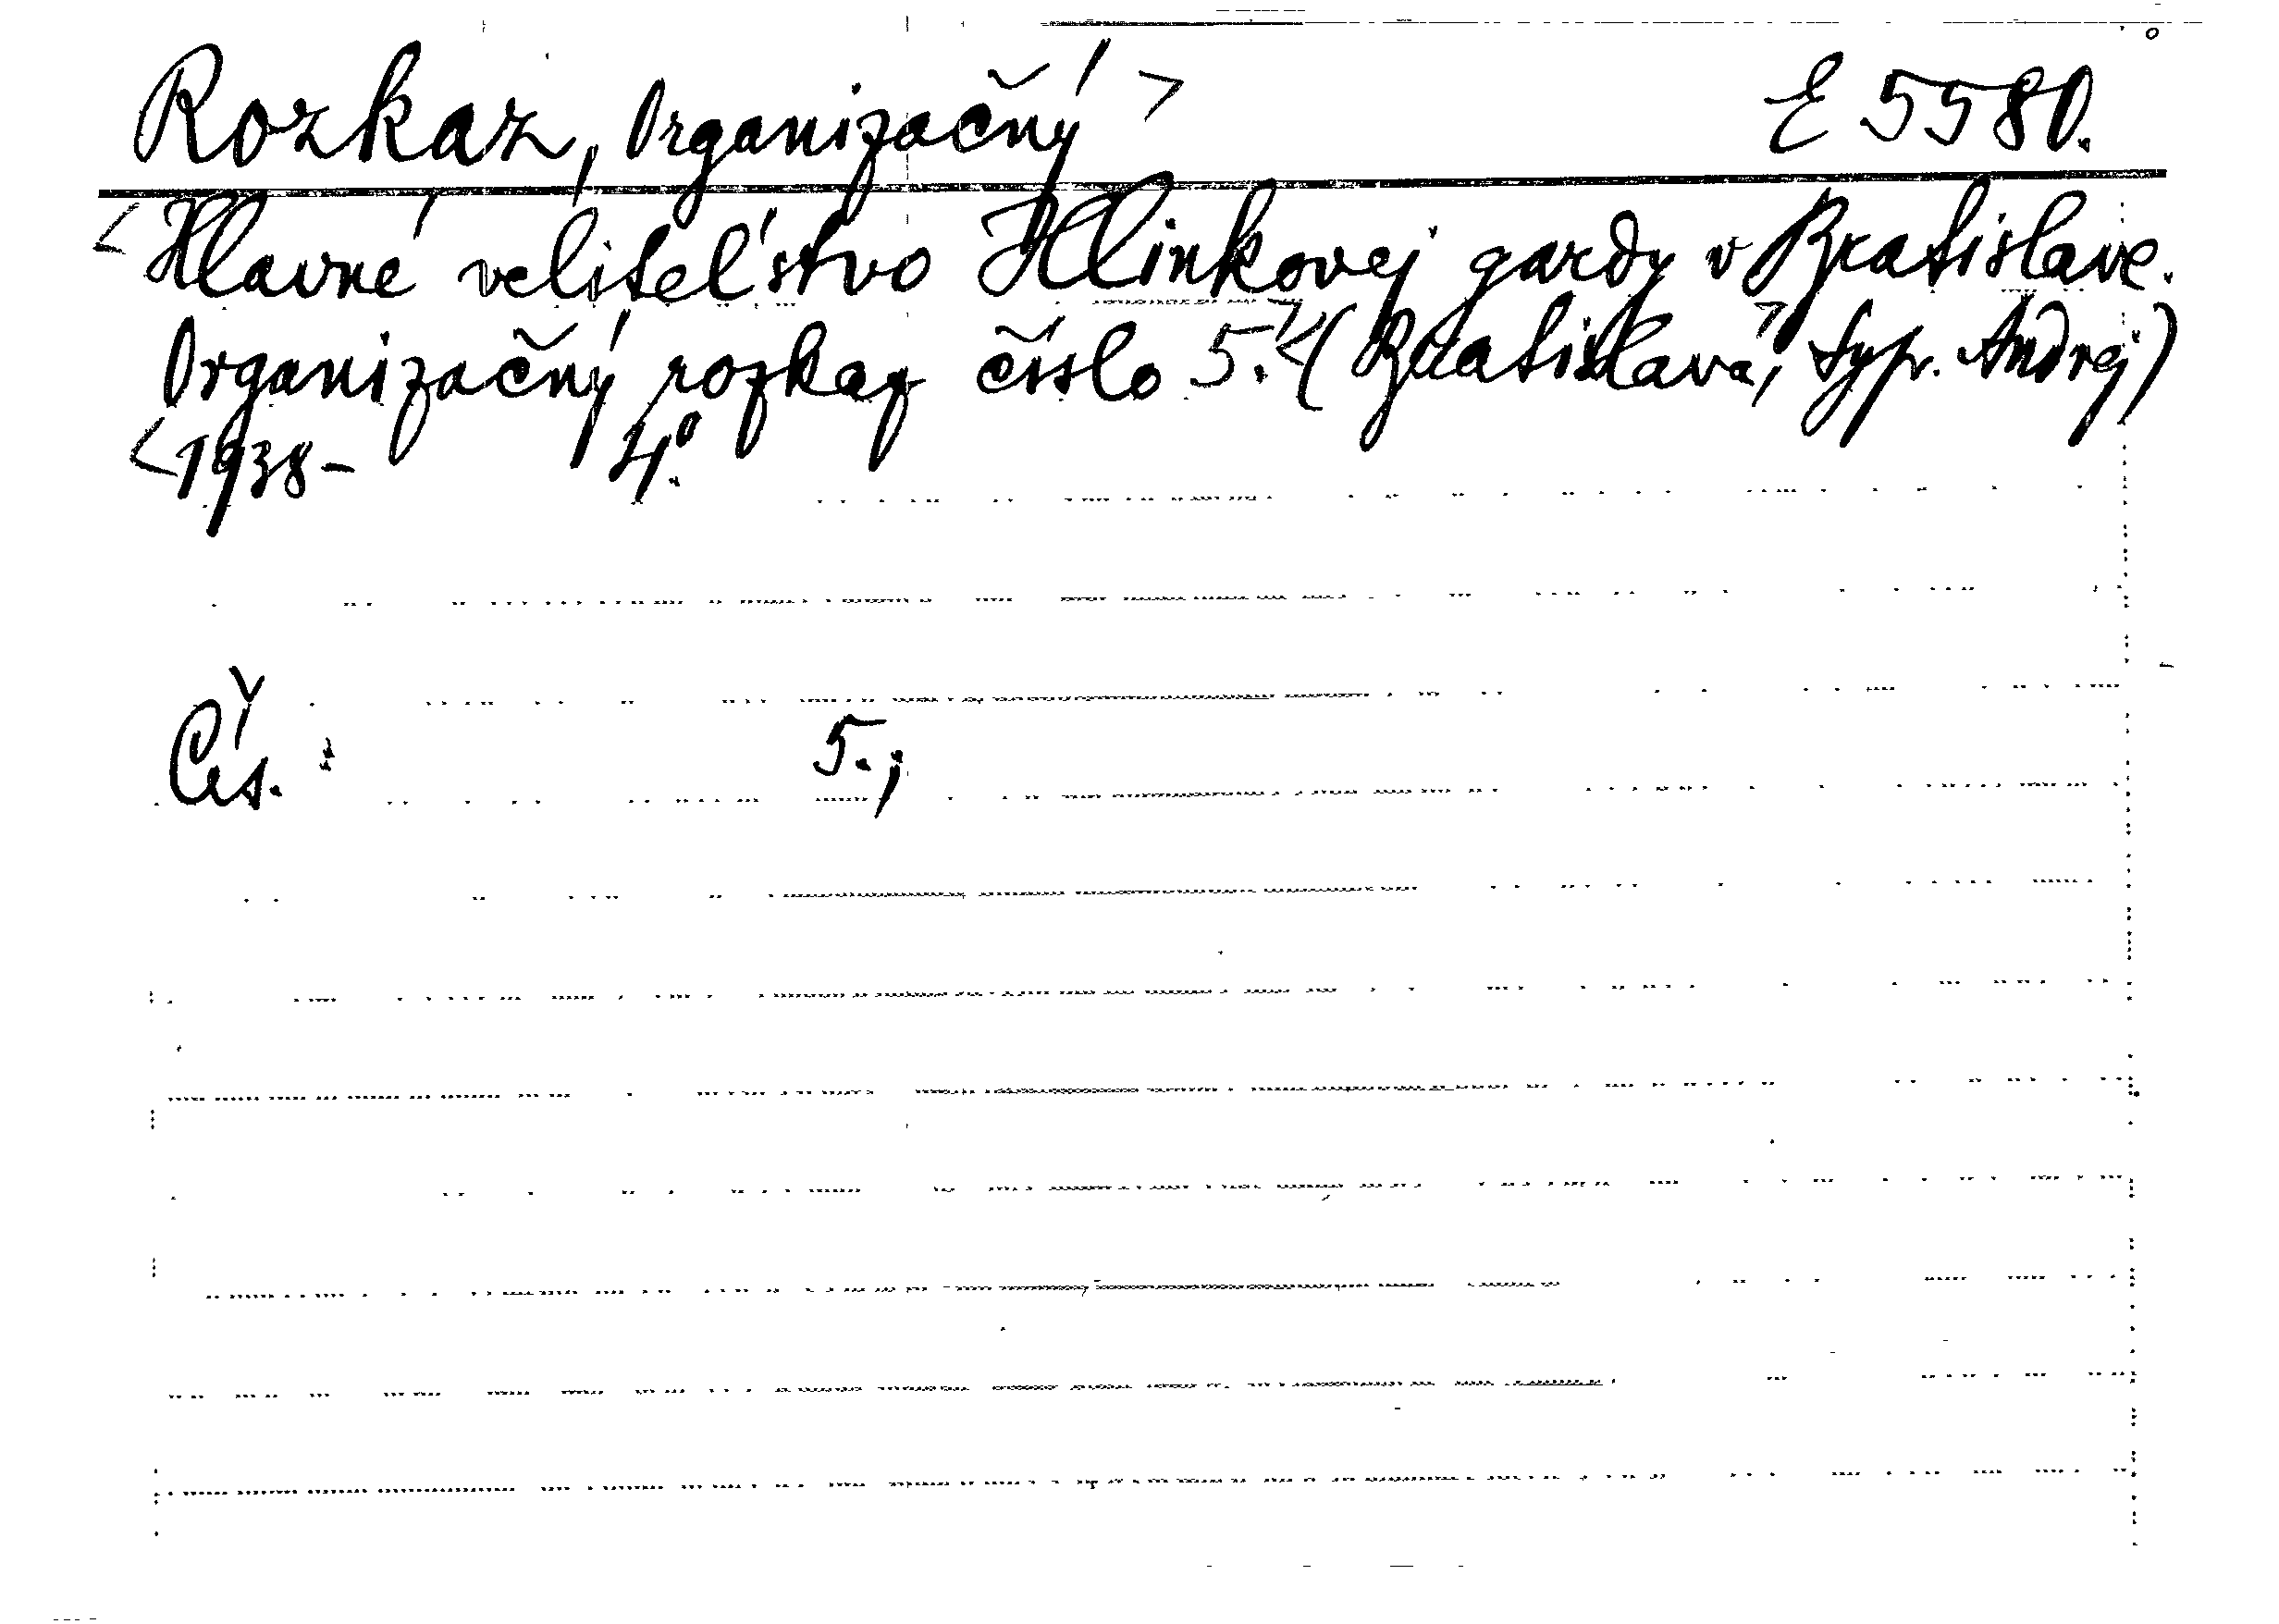 Rozkaz, Organizačný > E 5580.
< Hlavné veliteľstvo Hlinkovej gardy v Bratislave.
Organizačný rozkaz číslo 5.> < (Bratislava, > Typ. Andrej)
< 1938- 4°.
Čís. : 5.;